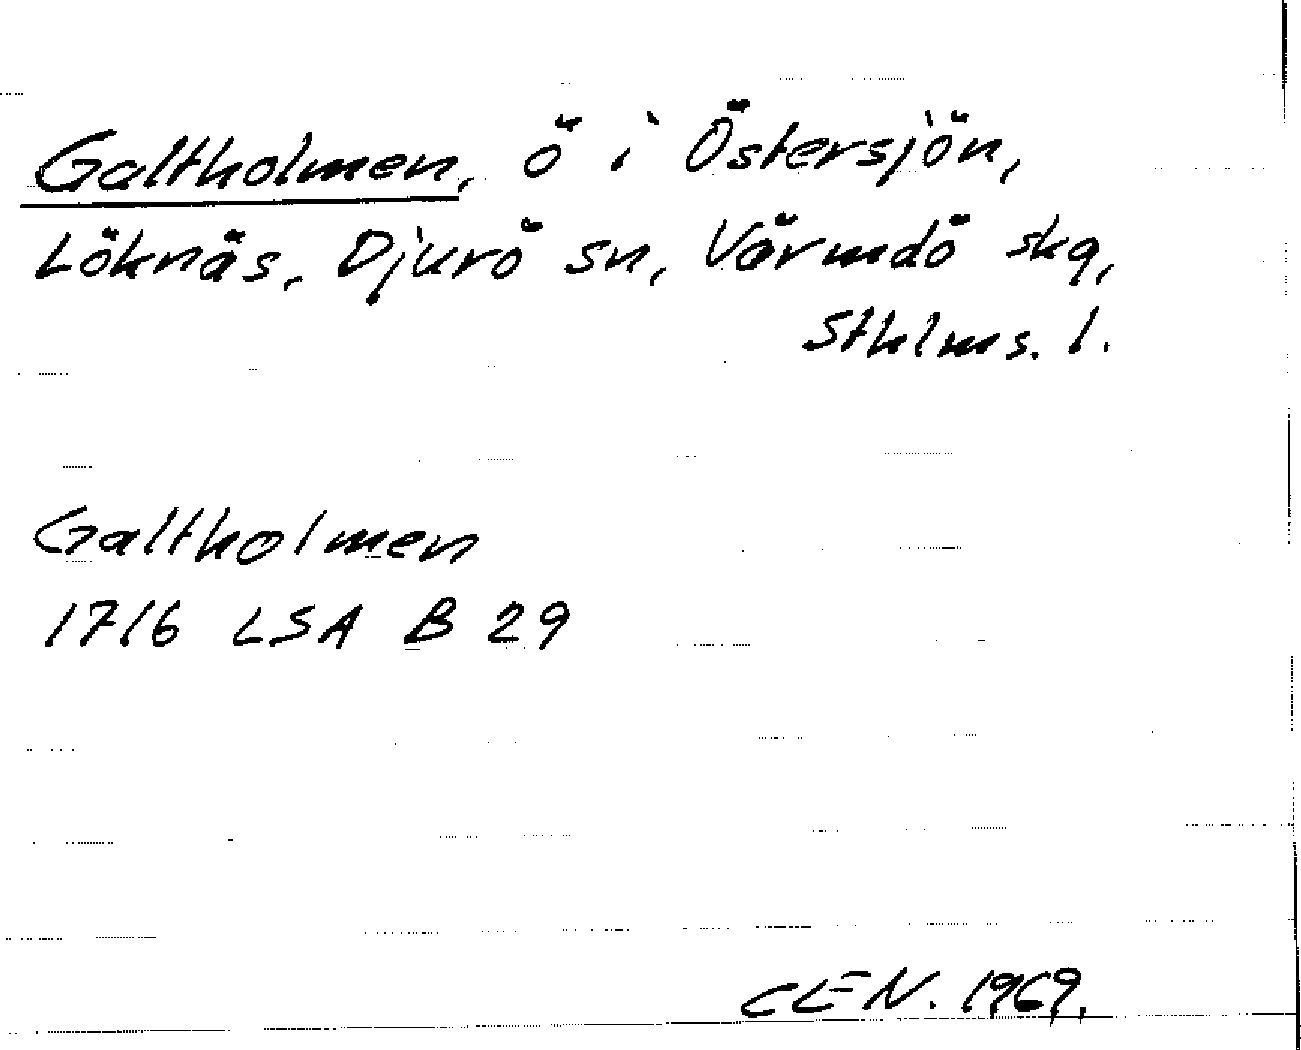 Galtholmen, ö i Östersjön,
Löknäs, Djurö sn, Värmdö skg,
Sthlms. l.
Galtholmen
1716 LSA B 29
CLEN. 1969.